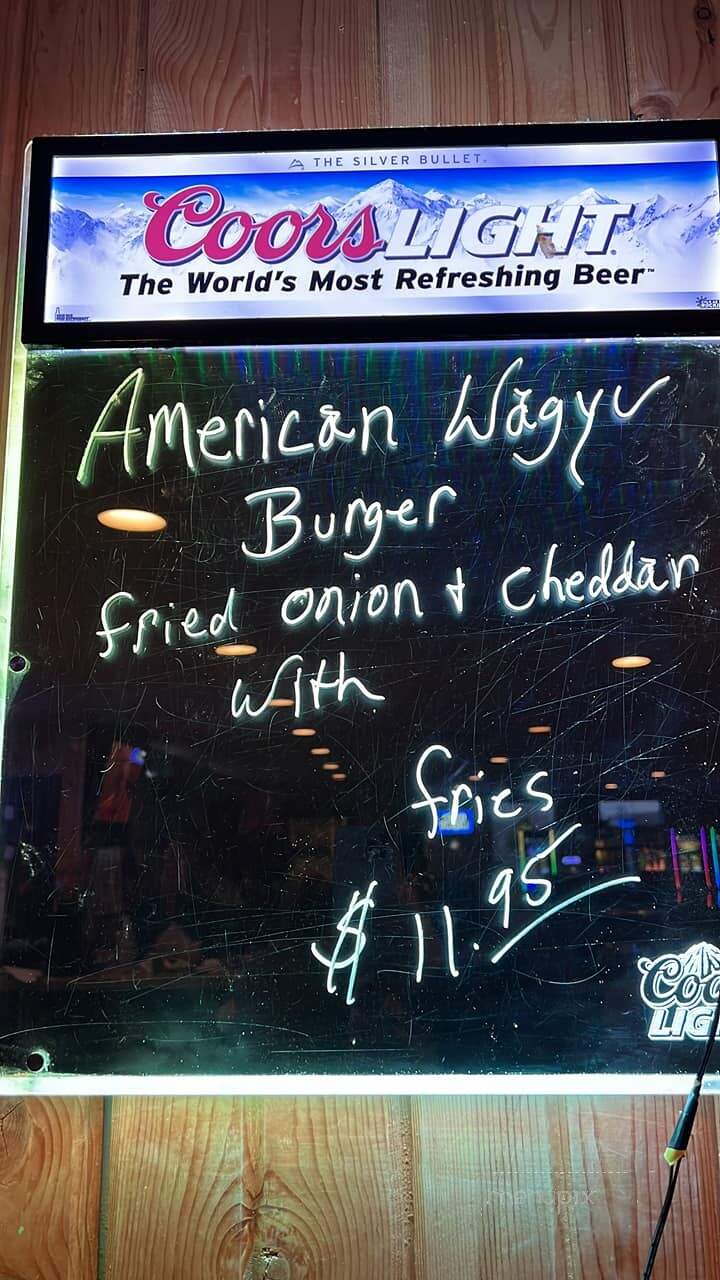 THE SILVER BULLET.
Coors LIGHT
The World's Most Refreshing Beer™
American Wagyu
Burger
fried onion + cheddar
with
fries
$ 11.95
Coo
LIG
menupix